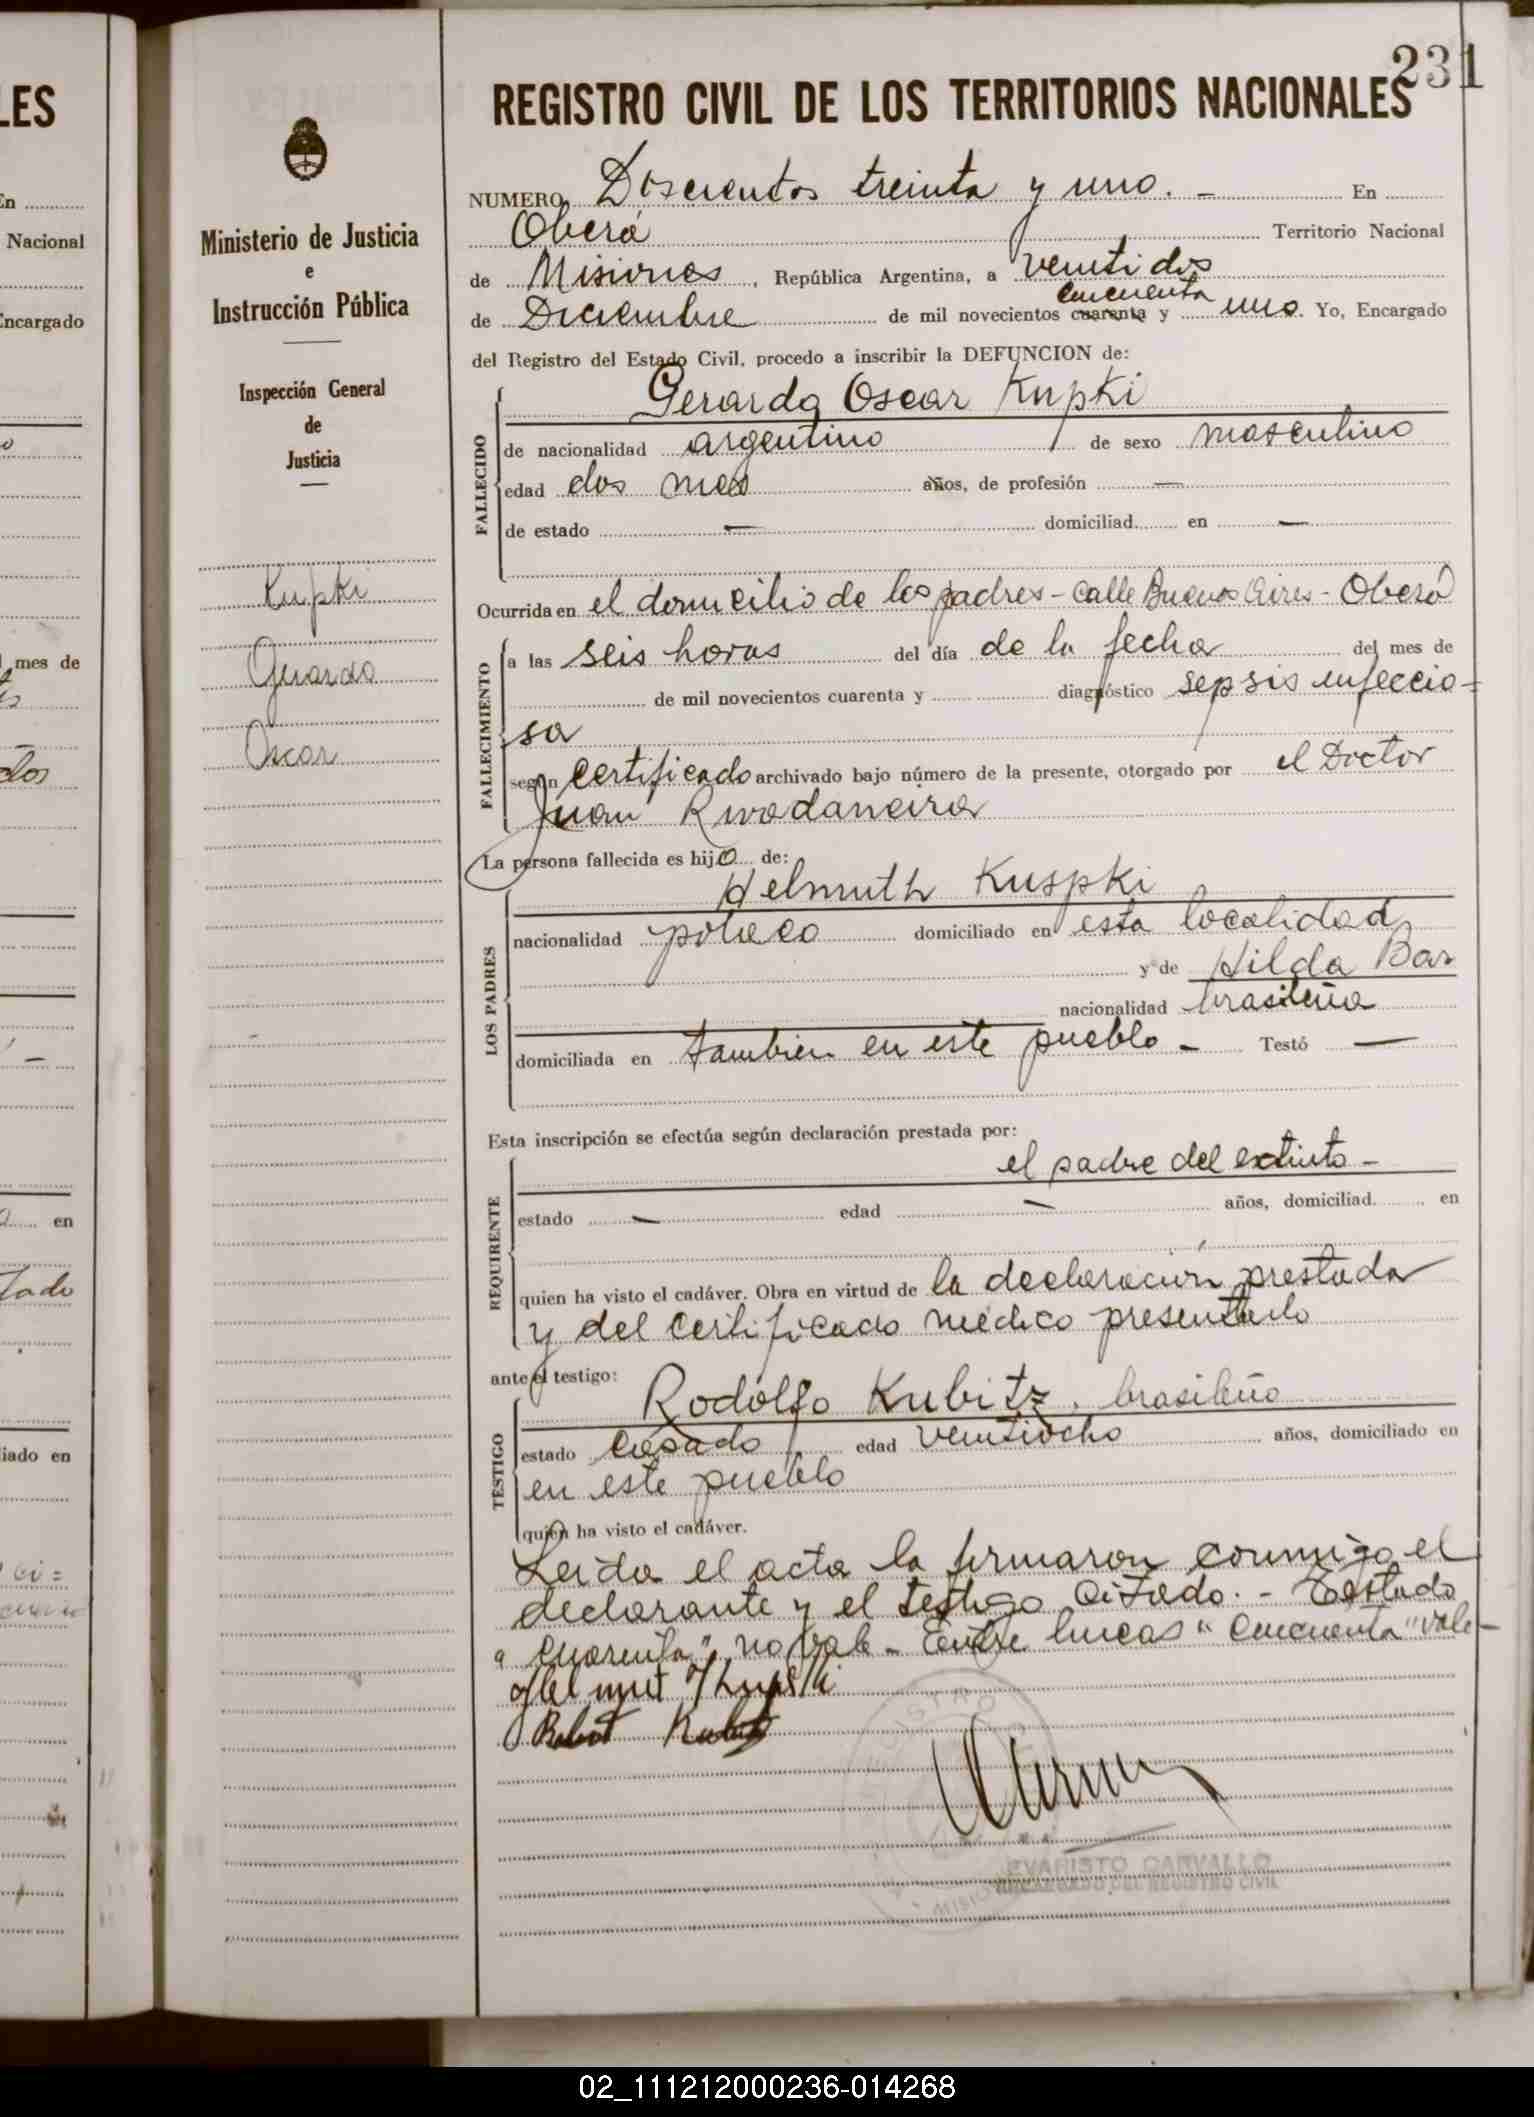 231
REGISTRO CIVIL DE LOS TERRITORIOS NACIONALES
Ministerio de Justicia
e
Instrucción Pública
Inspección General
de
Justicia
Kupki
Gerardo
Oscar
NUMERO Doscientos treinta y uno. - En
Oberá Territorio Nacional
de Misiones, República Argentina, a veintidos
cincuenta
de Diciembre de mil novecientos cuarenta y uno. Yo, Encargado
del Registro del Estado Civil, procedo a inscribir la DEFUNCION de:
FALLECIDO
Gerardo Oscar Kupki
de nacionalidad argentino de sexo masculino
edad dos mes años, de profesión —
de estado — domiciliad en —
Ocurrida en el domicilio de los padres - calle Buenos Aires - Oberá
FALLECIMIENTO
a las seis horas del día de la fecha del mes de
de mil novecientos cuarenta y diagnóstico sepsis infeccio-
sa
según certificado archivado bajo número de la presente, otorgado por el Doctor
Juan Rivadaneira
La persona fallecida es hijo de:
LOS PADRES
Helmuth Kuspki
nacionalidad polaco domiciliado en esta localidad
y de Hilda Bar
nacionalidad brasileña
domiciliada en tambien en este pueblo - Testó —
Esta inscripción se efectúa según declaración prestada por:
REQUIRENTE
el padre del extinto -
estado — edad — años, domiciliad en
quien ha visto el cadáver. Obra en virtud de la declaración prestada
y del certificado médico presentado
ante el testigo:
TESTIGO
Rodolfo Kubitz, brasileño
estado casado edad veintiocho años, domiciliado en
en este pueblo
quien ha visto el cadáver.
Leida el acta la firmaron conmigo el
declarante y el testigo citado. - Testado
"cuarenta" no vale - Entre lineas "cincuenta" vale -
EVARISTO CARVALLO
ENCARGADO DEL REGISTRO CIVIL
LES
En
Nacional
Encargado
mes de
dos
en
tado
iado en
02_111212000236-014268